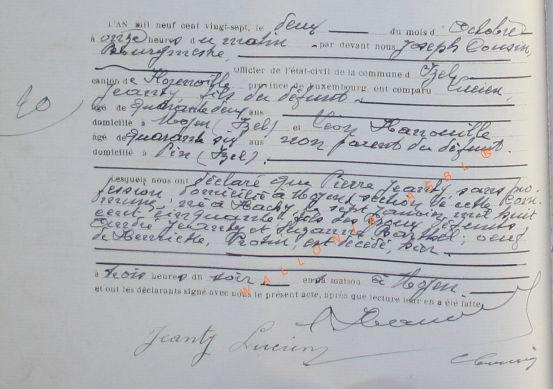 L'AN mil neuf cent vingt-sept, le deux du mois d'Octobre
à onze heures du matin par devant nous Joseph Cousin,
Bourgmestre, Officier de l'état-civil de la commune d'Izel,
canton de Florenville, province de Luxembourg, ont comparu Lucien,
Jeanty, fils du défunt
âgé de quarante deux ans
domicilié à Moyen (Izel) et Léon
âgé de quarante six ans non parent du défunt.
domicilié à Pin (Izel).
Lesquels nous ont déclaré que Pierre Jeanty, sans pro-
fession, domicilié à Moyen, section de cette Com-
mune, né à Jancy le sept Janvier mil huit
cent cinquante, fils des époux défunts,
Jeanty et Suzanne
de Henriette, est décédé, hier
à trois heures du soir en sa maison à Moyen.
et ont les déclarants signé avec nous le présent acte, après que lecture leur en a été faite.
Jeanty Lucien
WALLONIE ASBL ©